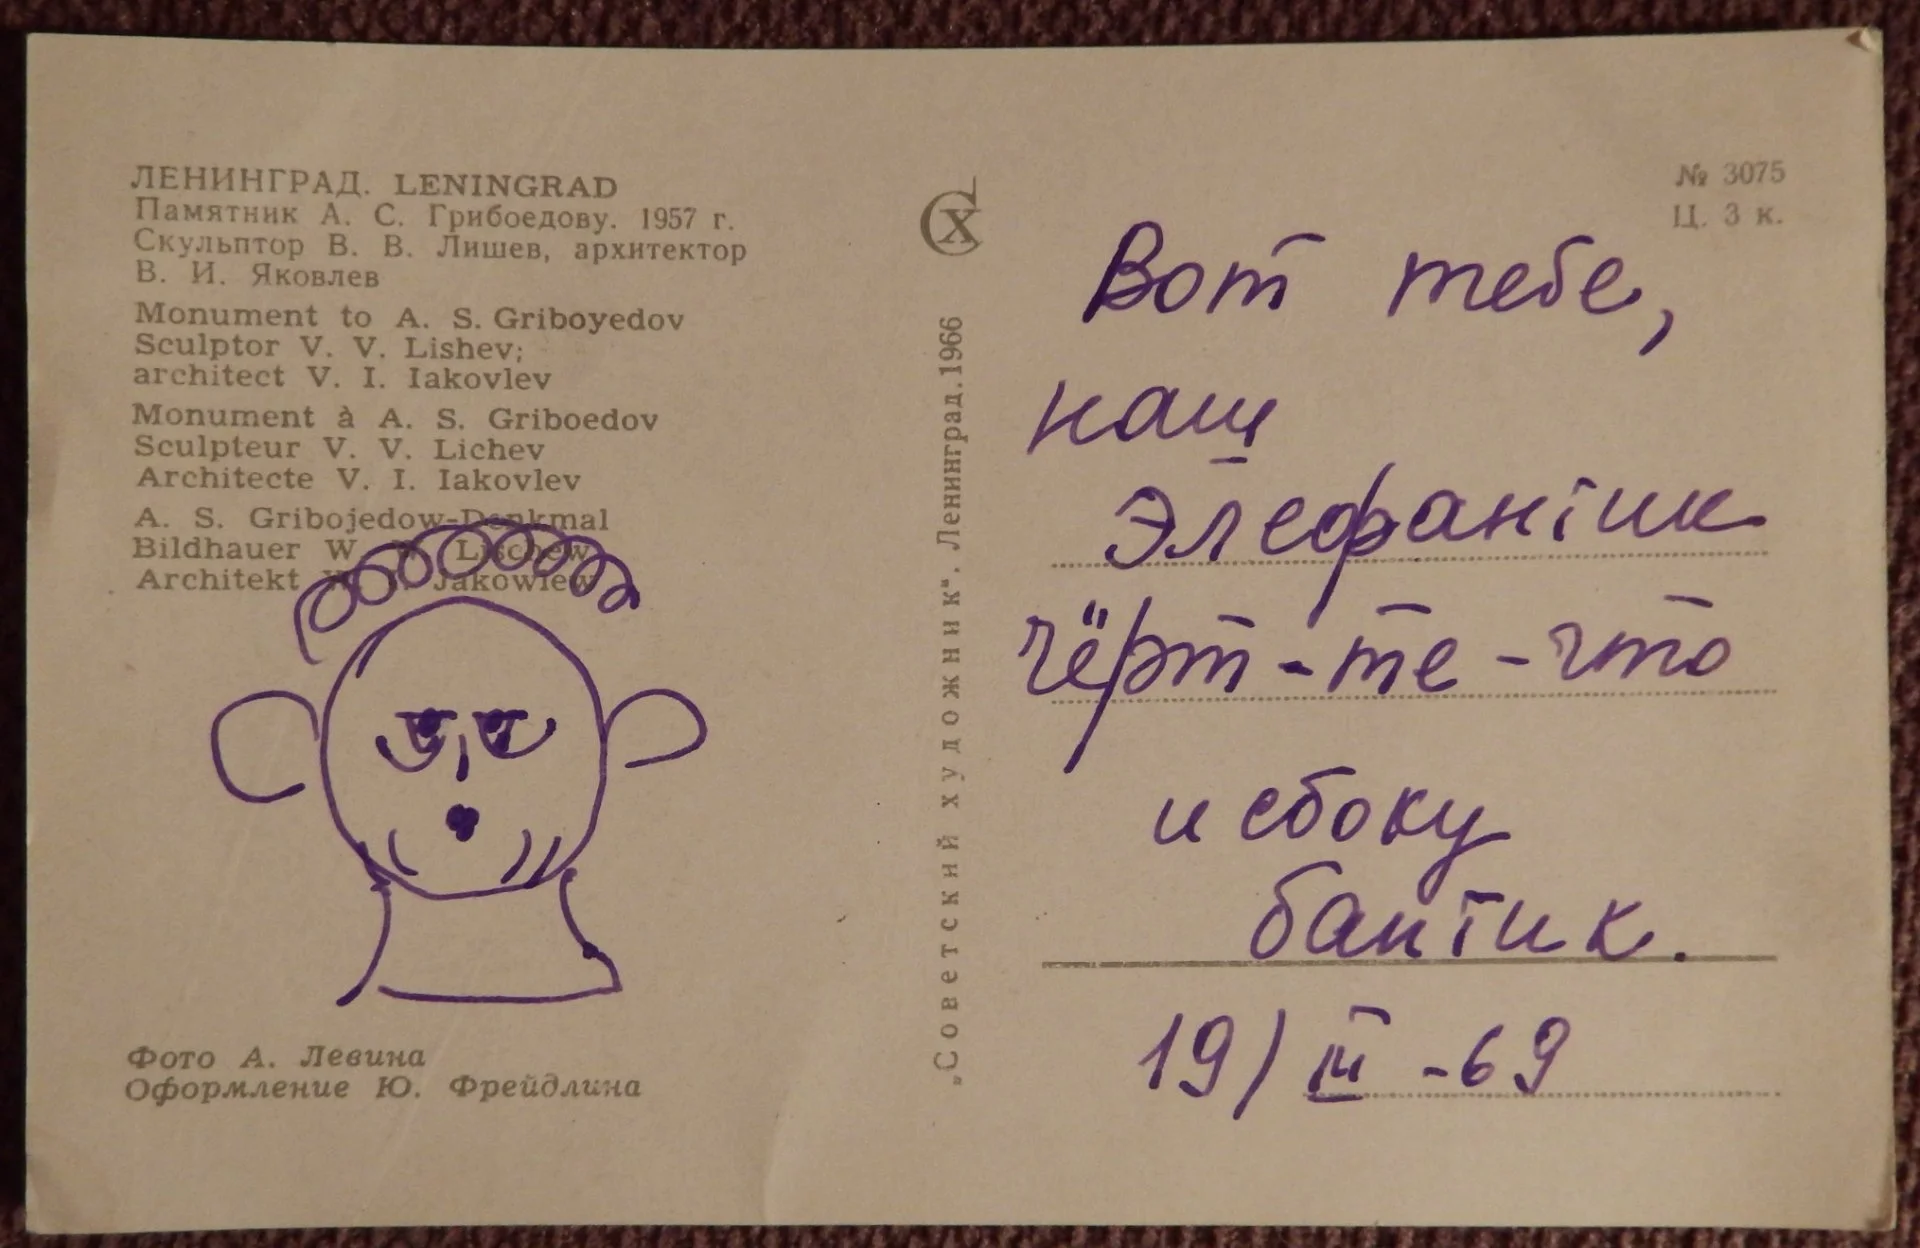 ЛЕНИНГРАД. LENINGRAD
Памятник А. С. Грибоедову. 1957 г.
Скульптор В. В. Лишев, архитектор
В. И. Яковлев
Monument to A. S. Griboyedov
Sculptor V. V. Lishev;
architect V. I. Iakovlev
Monument à A. S. Griboedov
Sculpteur V. V. Lichev
Architecte V. I. Iakovlev
A. S. Gribojedow-Denkmal
Bildhauer W. W. Lischew
Architekt W. I. Jakowlew
Фото А. Левина
Оформление Ю. Фрейдлина
СХ
„Советский художник“. Ленинград. 1966
№ 3075
Ц. 3 к.
Вот тебе,
наш
Элефантик
чёрт-те-что
и сбоку
бантик.
19/III-69